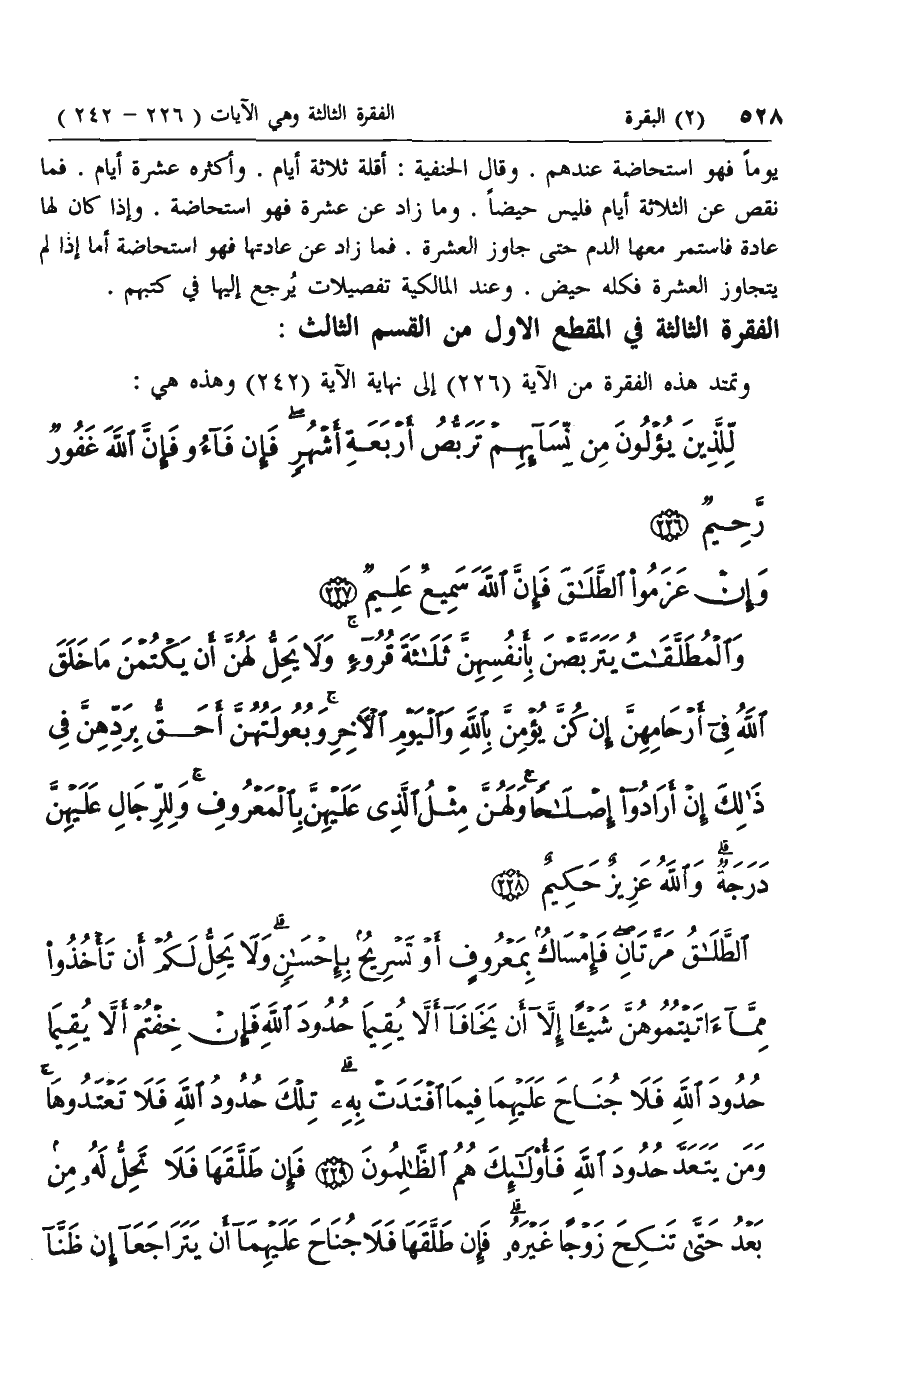 ٥٢٨ (٢) البقرة الفقرة الثالثة وهي الآيات ( ٢٢٦ – ٢٤٢ )
يوماً فهو استحاضة عندهم . وقال الحنفية : أقلة ثلاثة أيام . وأكثره عشرة أيام . فما
نقص عن الثلاثة أيام فليس حيضاً . وما زاد عن عشرة فهو استحاضة . وإذا كان لها
عادة فاستمر معها الدم حتى جاوز العشرة . فما زاد عن عادتها فهو استحاضة أما إذا لم
يتجاوز العشرة فكله حيض . وعند المالكية تفصيلات يُرجع إليها في كتبهم .
الفقرة الثالثة في المقطع الاول من القسم الثالث :
وتمتد هذه الفقرة من الآية (٢٢٦) إلى نهاية الآية (٢٤٢) وهذه هي :
لِّلَّذِينَ يُؤْلُونَ مِن نِّسَآئِهِمْ تَرَبُّصُ أَرْبَعَةِ أَشْهُرٍ ۖ فَإِن فَآءُو فَإِنَّ ٱللَّهَ غَفُورٌ
رَّحِيمٌ ٢٢٦
وَإِنْ عَزَمُوا۟ ٱلطَّلَـٰقَ فَإِنَّ ٱللَّهَ سَمِيعٌ عَلِيمٌ ٢٢٧
وَٱلْمُطَلَّقَـٰتُ يَتَرَبَّصْنَ بِأَنفُسِهِنَّ ثَلَـٰثَةَ قُرُوٓءٍ ۚ وَلَا يَحِلُّ لَهُنَّ أَن يَكْتُمْنَ مَا خَلَقَ
ٱللَّهُ فِىٓ أَرْحَامِهِنَّ إِن كُنَّ يُؤْمِنَّ بِٱللَّهِ وَٱلْيَوْمِ ٱلْـَٔاخِرِ ۚ وَبُعُولَتُهُنَّ أَحَقُّ بِرَدِّهِنَّ فِى
ذَٰلِكَ إِنْ أَرَادُوٓا۟ إِصْلَـٰحًا ۚ وَلَهُنَّ مِثْلُ ٱلَّذِى عَلَيْهِنَّ بِٱلْمَعْرُوفِ ۚ وَلِلرِّجَالِ عَلَيْهِنَّ
دَرَجَةٌ ۗ وَٱللَّهُ عَزِيزٌ حَكِيمٌ ٢٢٨
ٱلطَّلَـٰقُ مَرَّتَانِ ۖ فَإِمْسَاكٌۢ بِمَعْرُوفٍ أَوْ تَسْرِيحٌۢ بِإِحْسَـٰنٍ ۗ وَلَا يَحِلُّ لَكُمْ أَن تَأْخُذُوا۟
مِمَّآ ءَاتَيْتُمُوهُنَّ شَيْـًٔا إِلَّآ أَن يَخَافَآ أَلَّا يُقِيمَا حُدُودَ ٱللَّهِ ۖ فَإِنْ خِفْتُمْ أَلَّا يُقِيمَا
حُدُودَ ٱللَّهِ فَلَا جُنَاحَ عَلَيْهِمَا فِيمَا ٱفْتَدَتْ بِهِۦ ۗ تِلْكَ حُدُودُ ٱللَّهِ فَلَا تَعْتَدُوهَا ۚ
وَمَن يَتَعَدَّ حُدُودَ ٱللَّهِ فَأُو۟لَـٰٓئِكَ هُمُ ٱلظَّـٰلِمُونَ ٢٢٩ فَإِن طَلَّقَهَا فَلَا تَحِلُّ لَهُۥ مِنۢ
بَعْدُ حَتَّىٰ تَنكِحَ زَوْجًا غَيْرَهُۥ ۗ فَإِن طَلَّقَهَا فَلَا جُنَاحَ عَلَيْهِمَآ أَن يَتَرَاجَعَآ إِن ظَنَّآ